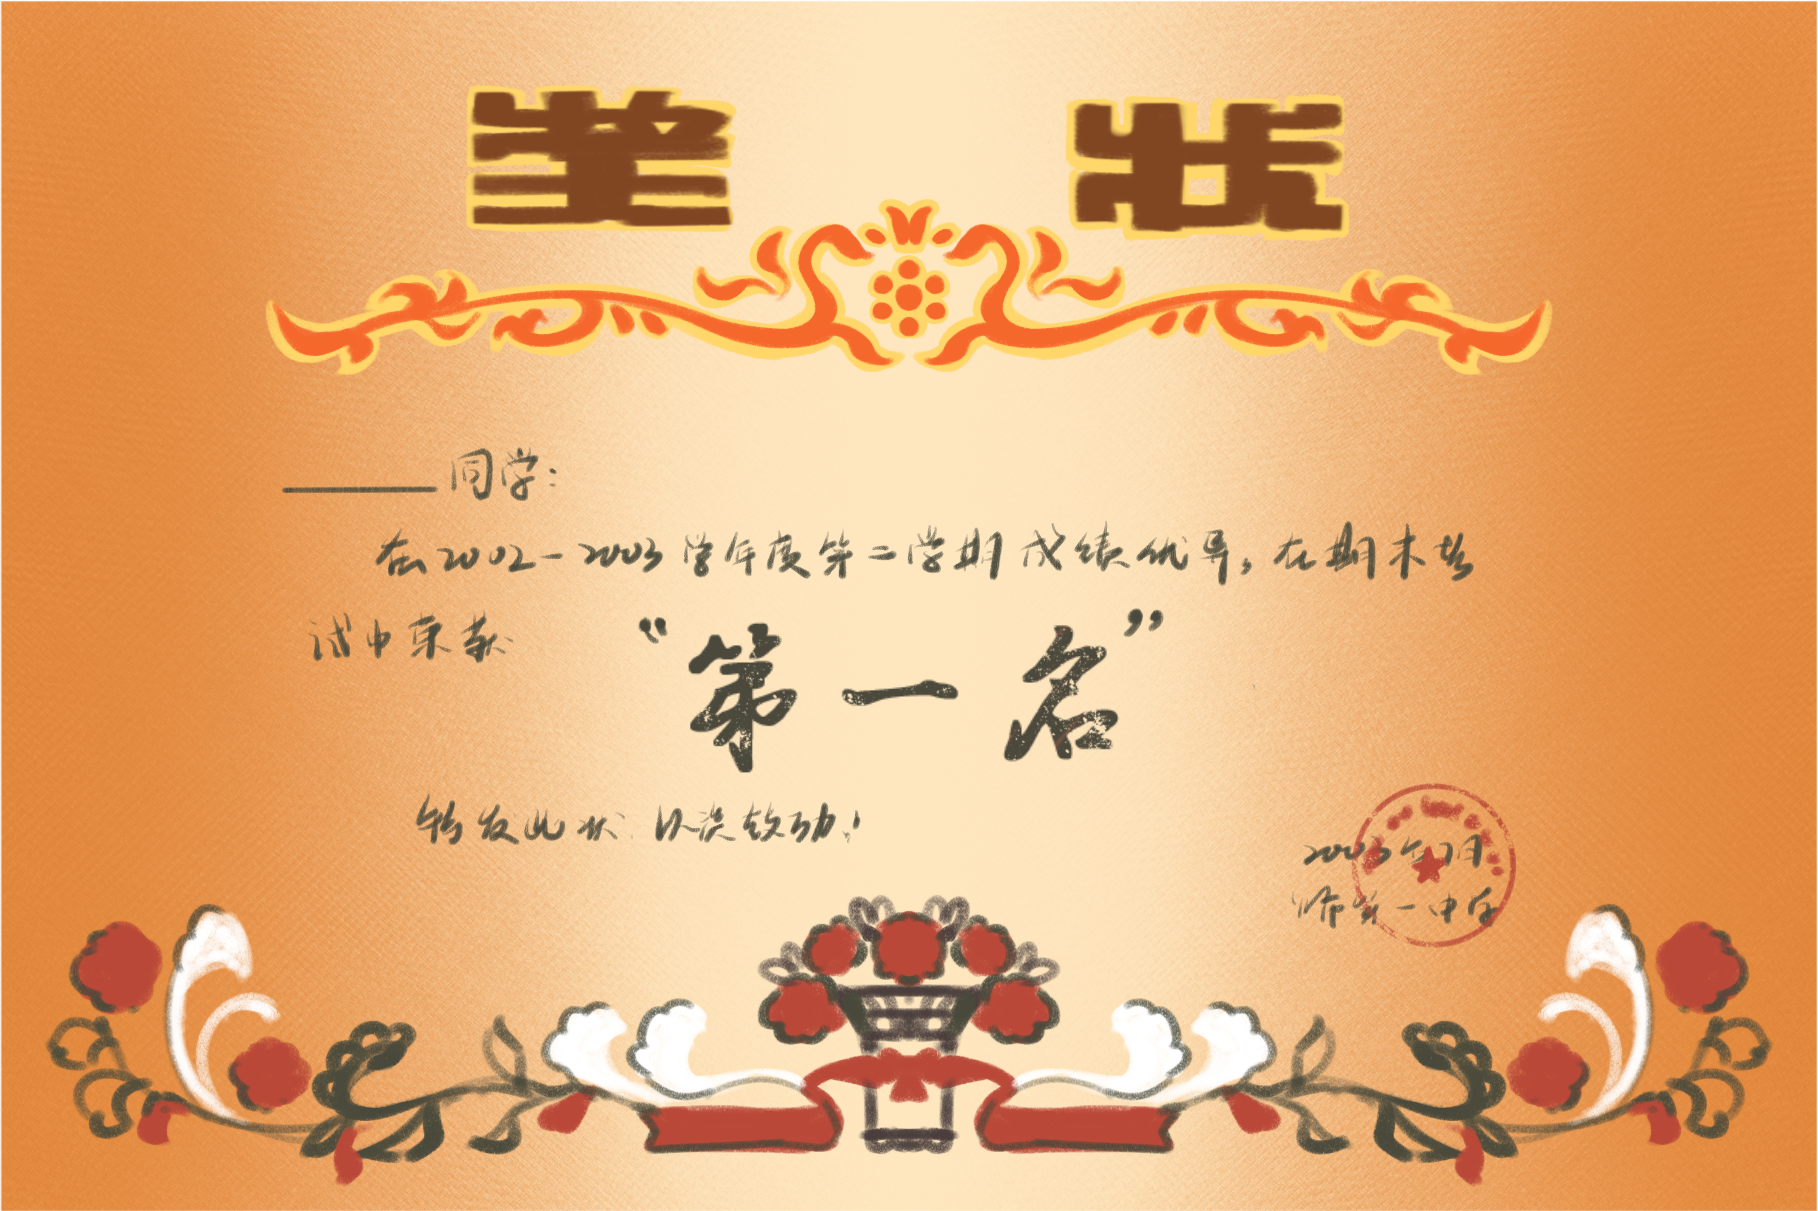 奖状
同学:
在2002-2003学年度第二学期成绩优异,在期末考
试中荣获
“第一名”
特发此状 以资鼓励!
2003年7月
师第一中学